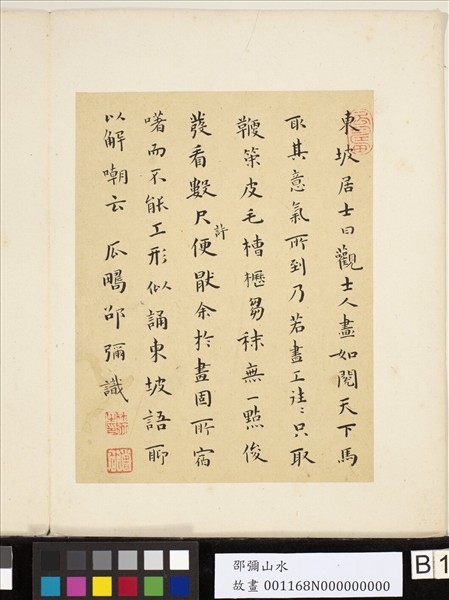 東坡居士曰觀士人畫如閱天下馬
取其意氣所到乃若畫工往〻只取
鞭策皮毛槽櫪芻秣無一點俊
發看數尺許便猒余於畫固所宿
嗜而不能工形似誦東坡語聊
以解嘲云 瓜疇邵彌識
邵彌山水
故畫 001168N000000000
B 1